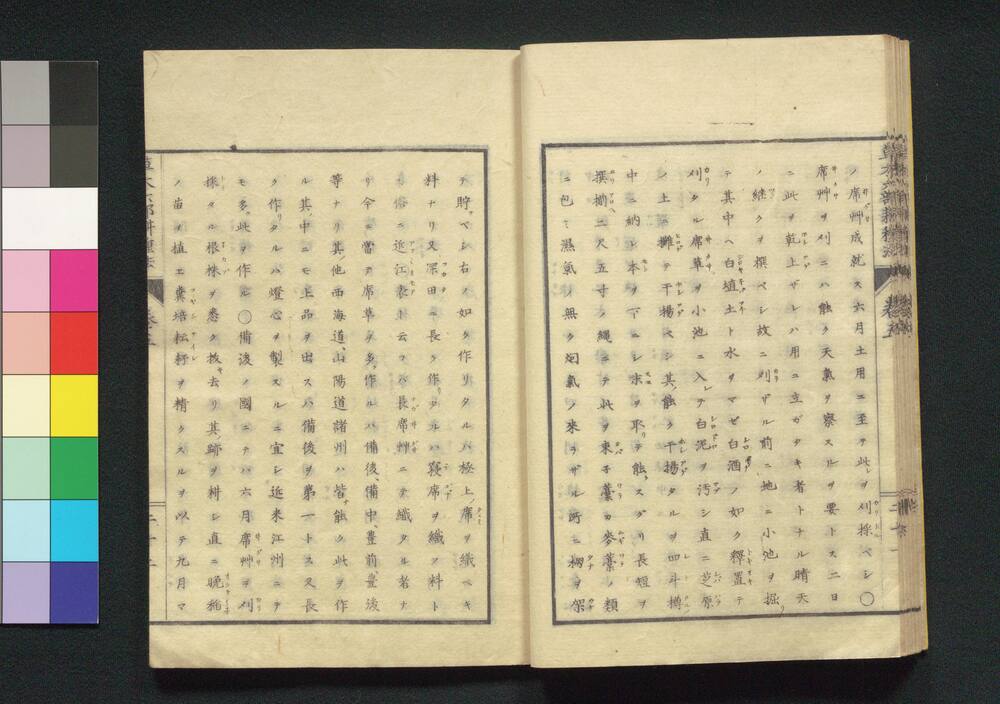 ノ席艸成就ス六月土用ニ至テ此ヲ刈採ベシ〇
席艸ヲ刈ニハ能ク天氣ヲ察スルヲ要トス二日
ニ此ヲ乾上ザレハ用ニ立ガタキ者トナル晴天
ノ継クヲ撰ベシ故ニ刈ザル前ニ地ニ小池ヲ掘リ
テ其中ヘ白埴土ト水ヲマゼ白酒ノ如ク釋置テ
刈タル席草ヲ小池ニ入レテ白泥ヲ汚シ直ニ芝原
ノ上ニ攤テ干揚ベシ其能ク干揚タルヲ四斗樽
中ニ納レ本ヲ下ニシ末ヲ取リテ能スグリ長短ヲ
撰揃ニ尺五寸ノ縄ニテ此ヲ束子藁カ麥藁ノ類
ニ包ミ濕氣ノ無ク烟氣ノ來ラザル所ニ棚ヲ架
テ貯ベシ右ノ如ク作リタルハ極上ノ席ヲ織ベキ
料ナリ又深田ニ長ク作リタルハ寝席ヲ織ノ料ト
ス俗ニ近江表ト云フハ長席艸ニテ織タル者ナ
リ今ニ當テ席草ヲ多ク作ルハ備後備中豊前豊後
等ナリ其他西海道山陽道諸州ハ皆能ク此ヲ作
ル其中ニモ上品ヲ出スハ備後ヲ第一トス又長
ク作リタルハ燈心ヲ製スルニ宜シ近来江州ニテ
モ多ク此ヲ作ル〇備後ノ國ニテハ六月席艸ヲ刈
採タル根株ヲ悉ク拔去リ其跡ヲ耕シ直ニ晩稲
ノ苗ヲ植エ糞培耘耔ヲ精クスルヲ以テ九月マ